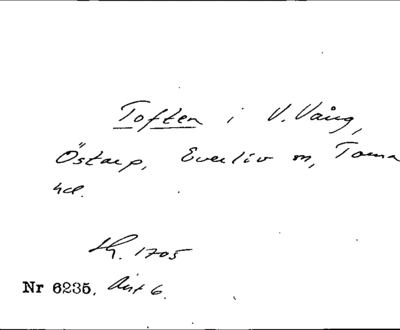 Toften i V. Vång,
Östarp, Everlöv sn, Torna
hd.
Sk. 1705
Nr 6235. Akt 6.